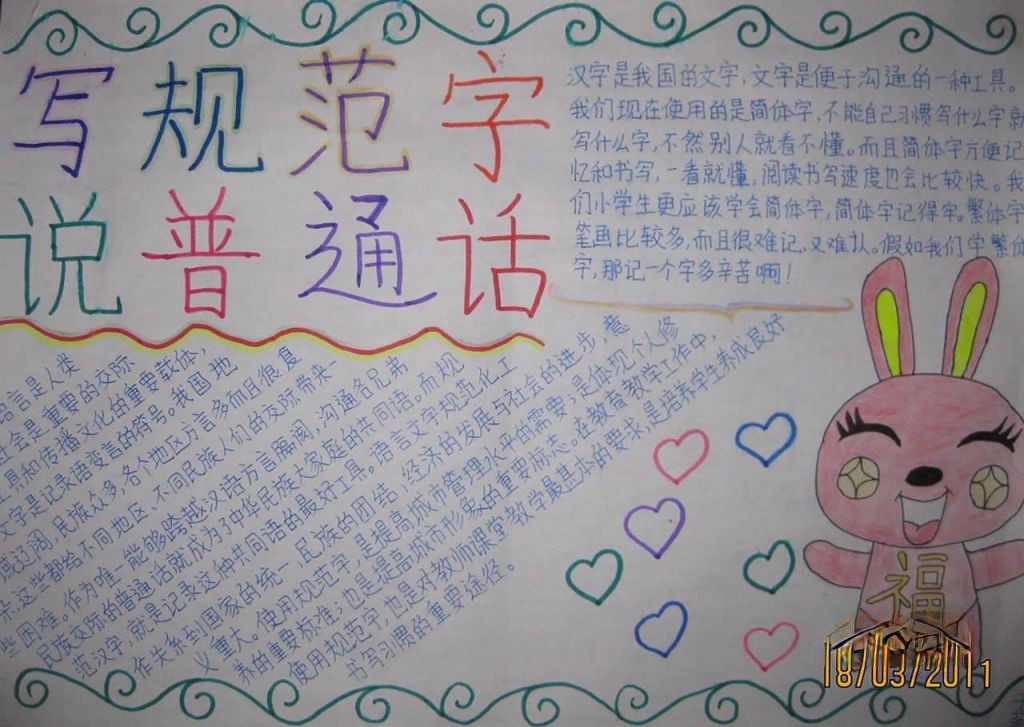 写规范字
说普通话
汉字是我国的文字，文字是便于沟通的一种工具。
我们现在使用的是简体字，不能自己习惯写什么字就
写什么字，不然别人就看不懂。而且简体字方便记
忆和书写，一看就懂，阅读书写速度也会比较快。我
们小学生更应该学会简体字，简体字记得牢。繁体字
笔画比较多，而且很难记，又难认。假如我们学繁体
字，那记一个字多辛苦啊！
语言是人类
社会是重要的交际
工具和传播文化的重要载体，
文字是记录语变言的符号。我国地
域辽阔，民族众多，各个地区方言多而且很复
杂，这些都给不同地区、不同民族人们的交际带来一
些困难。作为唯一能够跨越汉语方言隔阂，沟通各兄弟
民族交际的普通话就成为了中华民族大家庭的共同语。而规
范汉字，就是记录这种共同语的最好工具。语言文字规范化工
作关系到国家的统一，民族的团结，经济的发展与社会的进步，意
义重大。使用规范字，是提高城市管理水平的需要；是体现个人修
养的重要标准；也是提高城市形象的重要标志。在教育教学工作中，
使用规范字，也是对教师课堂教学最基本的要求，是培养学生养成良好
书写习惯的重要途径。
福
18/03/2011